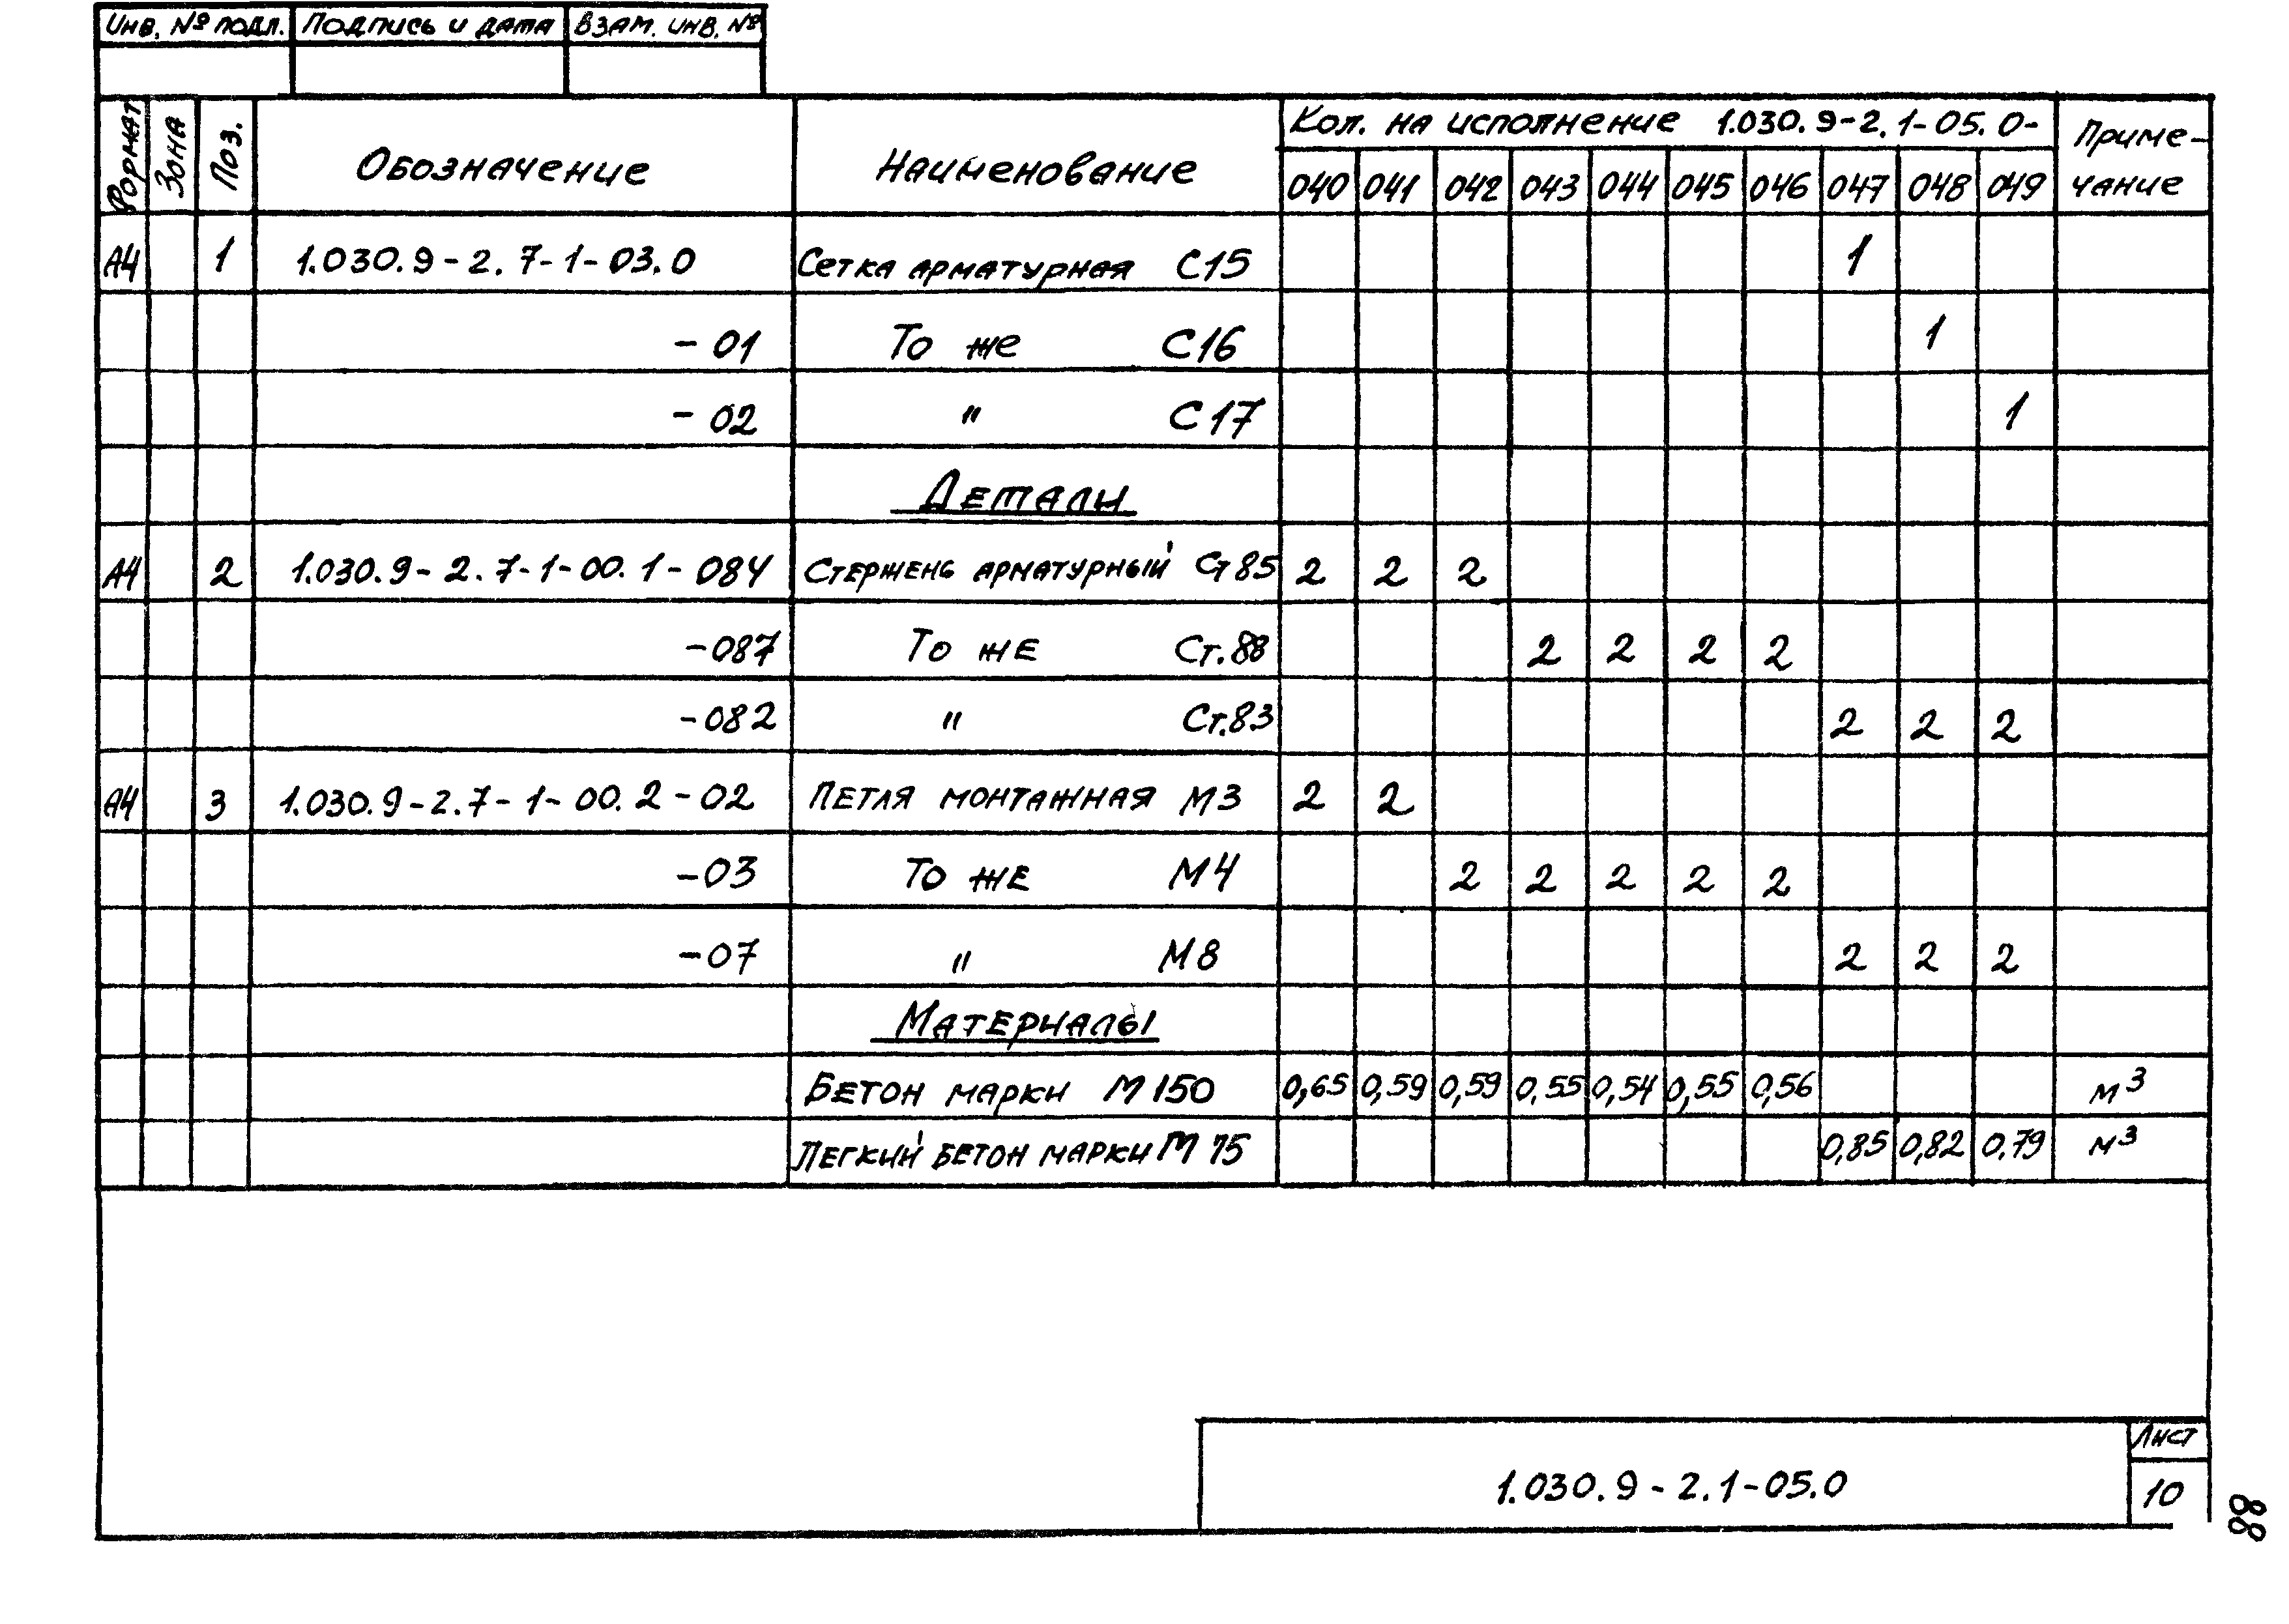 Инв. № подл. Подпись и дата Взам. инв. №
Формат Зона Поз. Обозначение Наименование Кол. на исполнение 1.030.9-2.1-05.0- Приме-
чание
040 041 042 043 044 045 046 047 048 049
А4 1 1.030.9-2.7-1-03.0 Сетка арматурная С15 1
-01 То же С16 1
-02 " С17 1
Детали
А4 2 1.030.9-2.7-1-00.1-084 Стержень арматурный Ст85 2 2 2
-087 То же Ст.88 2 2 2 2
-082 " Ст.83 2 2 2
А4 3 1.030.9-2.7-1-00.2-02 Петля монтажная М3 2 2
-03 То же М4 2 2 2 2 2
-07 " М8 2 2 2
Материалы
Бетон марки М150 0,65 0,59 0,59 0,55 0,54 0,55 0,56 м³
Легкий бетон марки М75 0,85 0,82 0.79 м³
1.030.9-2.1-05.0
Лист
10
88